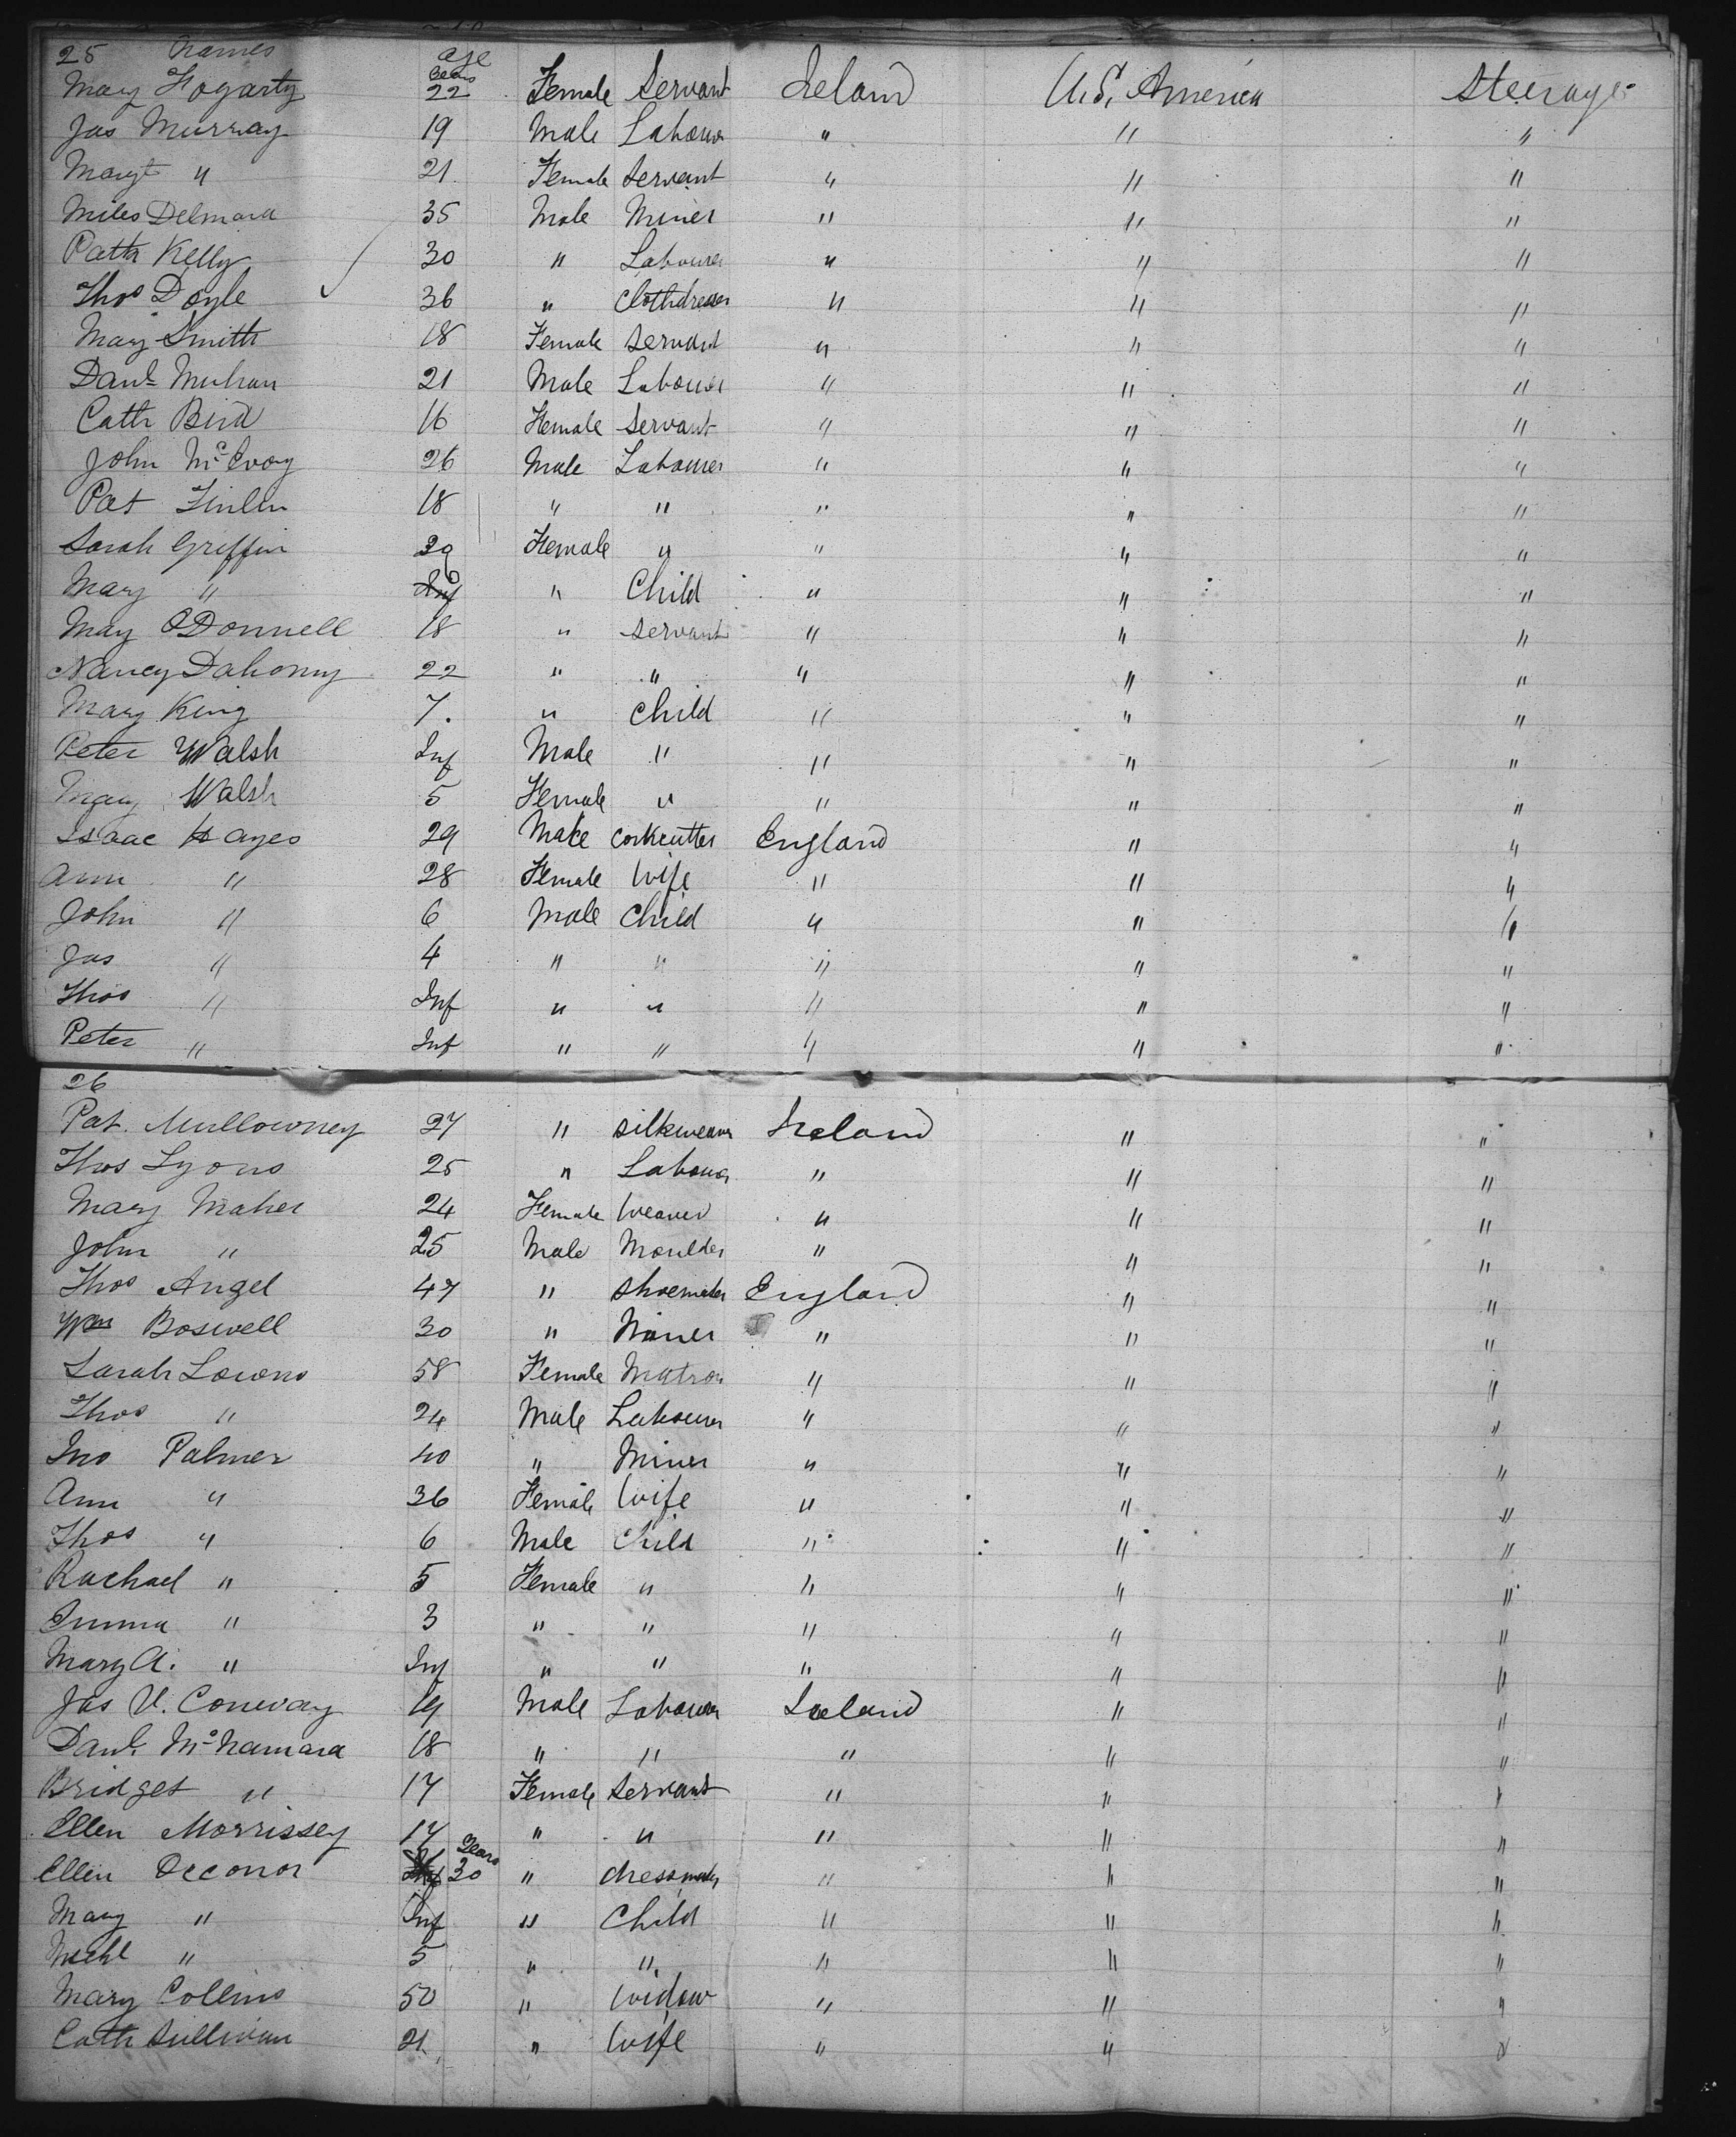 25 Names age
Years
Mary Fogarty 22 Female Servant Ireland U.S. America Steerage
Jas Murray 19 Male Labourer " " "
Margt " 21 Female Servant " " "
Miles Delmara 35 Male Miner " " "
Patk Kelly 30 " Labourer " " "
Thos Doyle 36 " Clothdresser " " "
Mary Smith 18 Female Servant " " "
Danl 21 Male Labourer " " "
Cath Bird 16 Female Servant " " "
John McEvoy 26 Male Labourer " " "
Pat 18 " " " " "
Sarah Griffin 29 Female " " " "
Mary " " Child " " "
Mary ODonnell 18 " Servant " " "
Nancy Dahony 22 " " " " "
Mary King 7. " Child " " "
Peter Walsh Inf Male " " " "
Mary Walsh 5 Female " " " "
Isaac Hayes 29 Male Corkcutter England " "
Ann " 28 Female Wife " " "
John " 6 Male Child " " "
Jas " 4 " " " " "
Thos " Inf " " " " "
Peter " Inf " " " " "
26
Pat. Mullowney 27 " Silkweaver Ireland " "
Thos Lyons 25 " Labourer " " "
Mary Maher 24 Female Weaver " " "
John " 25 Male Moulder " " "
Thos Angel 47 " Shoemaker England " "
Wm Boswell 30 " Miner " " "
Sarah 58 Female Matron " " "
Thos " 24 Male Labourer " " "
Jno Palmer 40 " Miner " " "
Ann " 36 Female Wife " " "
Thos " 6 Male Child " " "
Rachael " 5 Female " " " "
Emma " 3 " " " " "
Mary A. " Inf " " " " "
Jas V. Conway 19 Male Labourer Ireland " "
Danl. McNamara 18 " " " " "
Bridget " 17 Female Servant " " "
Ellen Morrissey 17 " " " " "
Years
Ellen Oconor 30 " dressmaker " " "
Mary " Inf " Child " " "
Michl " 5 " " " " "
Mary Collins 50 " Widow " " "
Cath Sullivan 21 " Wife " " "